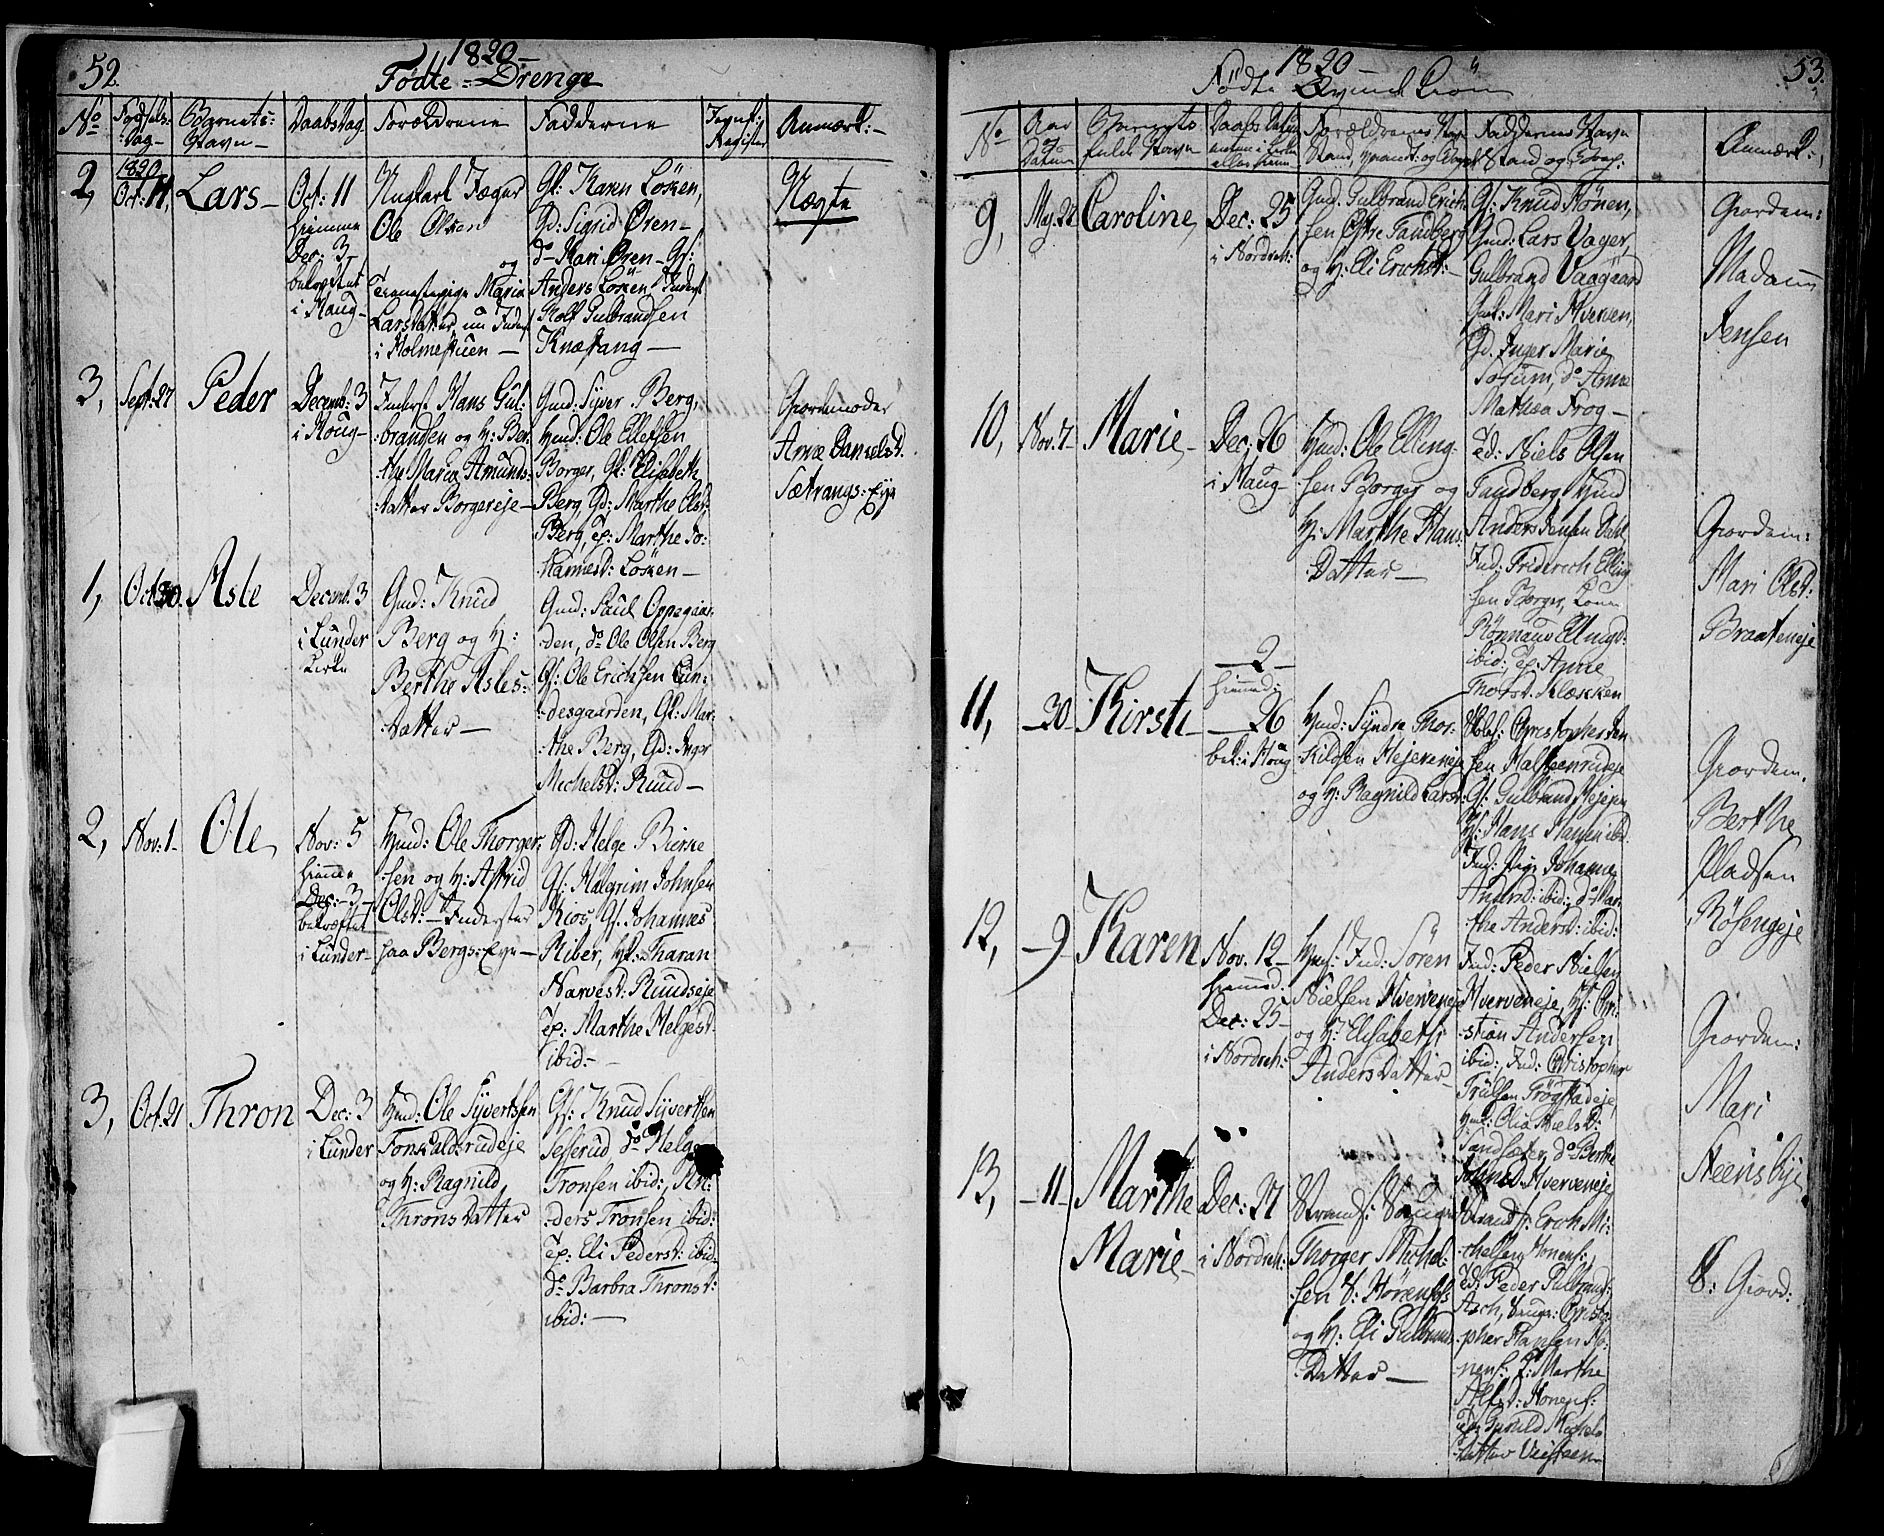 52.
1820 —
Födte = Drenge
No
Fødsels: Dag —
Barnets: Navn —
Daabsdag
Forældrene
Fadderne
Jevnf: Register
Anmærk: —
2,
1820
Oct: 11,
Lars —
Oct: 11
hiemme
Dec: 3,
bekræftet
i Houg —
Ungkarl Jæger
Ole Olsen
og
Tienestepige Maria
Larsdatter, nu Inderst
i Holmestuen —
Gk: Karen Løken,
Gd: Sigrid Ören —
do Mari Ören — Gf:
Anders Löken, Inderst
Rolf Gulbrandsen
Knæstang —
Nægte
3,
Sept: 27
Peder
Decemb: 3
i Houg —
Inderst Hans Gul:
:brandsen og H: Ber:
:the Maria Amunds:
:datter Borgereje —
Gmd: Syver Berg,
Hmd: Ole Ellefsen
Borger, Gk: Elisabeth
Berg, Gd: Marthe Olsd:
Berg, Tp: Marthe Jo:
:hannesd: Löken —
Giordemoder
Anne Danielsd.
Sætrangs: Eye
1,
Oct: 30.
Asle
Decemb. 3
i Lunder
Kirke
Gmd: Knud
Berg og H:
Berthe Asles:
:datter —
Gmd: Paul Oppegaar:
:den, do Ole Olsen Berg
Gf: Ole Erichsen Lun:
:desgaarden, Gk: Mar:
:the Berg, Gd: Inger
Michelsd: Ruud —
2,
Nov: 1 —
Ole
Nov: 5
hiemme
Dec: 3 —
bekræftet
i Lunder —
Hmd: Ole Thorger:
:sen og H: Astrid
Olsd: — Inderster
paa Bergs: Eye —
Gd: Helge Bierke
Gf: Halgrim Johnsen
Kios, Gf: Johannes
Riber, Hk: Tharan
Narvesd: Ruudseje
Tp: Marthe Helgesd:
ibid: —
3,
Oct. 21
Thron
Dec: 3
i Lunder
Hmd: Ole Syvertsen
Fonkaldsrudeje
og H: Ragnild
Thronsdatter
Gf: Knud Syvertsen
Sesserud, do Helge
Tronsen ibid:, An:
:ders Tronsen ibid:
Tp: Eli Pedersd: ibid:
do Barbra Thronsd:
ibid: —
53.
1820 —
Födte Qvindkiön
No
Aar Datum
Barnets fulde Navn
Forældrenes Navn Stand,
Faddernes Navn Stand og
Anmærk:
9,
May. 28
Caroline,
Dec: 25
i Nordreh:
Gmd. Gulbrand Erich:
sen Østre Tandberg
og H: Eli Erichsd: —
Gf: Knud Hönen,
Gmd: Lars Vager,
Gulbrand Vaagaard
Gmk: Mari Hverven,
Gd. Inger Marie
Sosum, do Anne
Mathea Frog —
Giordem:
Madam
Jensen
10,
Nov. 7 —
Marie —
Dec. 26
i Haug —
Hmd: Ole Elling:
:sen Borger og
H: Marthe Hans
Datter —
Niels Olsen
Tandberg, Hmd
Anders Jensen Dahl
Ind: Friderich Elling
sen Borger, Kone
Rönnaug Ellingsd:
ibid:, Tp: Anne
Thorsd: Klækken
Giordem:
Mari Olsd:
Braateneje
11,
— 30 —
Kirsti —
— 2 —
hiemmed:
— 26
bek: i Houg
Hmd: Syndre Thor:
:kildsen Hejereneje
og H: Ragnild Larsd:
Christopher Jen
sen Halsteenrudeje
Gf: Gulbrand Hejejen
Hf: Hans Haugen ibd:
Ind: Pige Johanne
Andersd: ibid:, do Mar:
:the Andersd: ibid:
Giordem.
Berthe
Pladsen
Rösengeje
12,
— 9 —
Karen
Nov. 12 —
hiemmed:
Dec: 25 —
i Nordreh:
Hmf: Ind: Sören
Nielsen Hverveneje
og H: Elisabeth
Andersdatter —
Ind: Peder Nielsen
Hverveneje, Hf: Chri:
:stian Andersen
ibid:, Ind: Christopher
Trulsen Frögstadeje,
Hmk: Olia Nielsd:
Sandsæter, do Berthe
Johansd: Hverveneje
Giordem:
Mari
Steensbye
13,
— 11 —
Marthe
Marie —
Dec: 27
i Nordreh:
Strands:
Thorger Michel:
:sen v: Hönenfoss
og H: Eli Gulbrands
:datter —
Strands: Erich Mi:
:chelsen Hönenf:
Peder Gulbrands:
Asch, Christo:
:pher Hansen Hö:
:nenf:, P: Marthe
Alfsd: Hönenf:
Gunild Michels
:datter Veisteen
8: Giord: